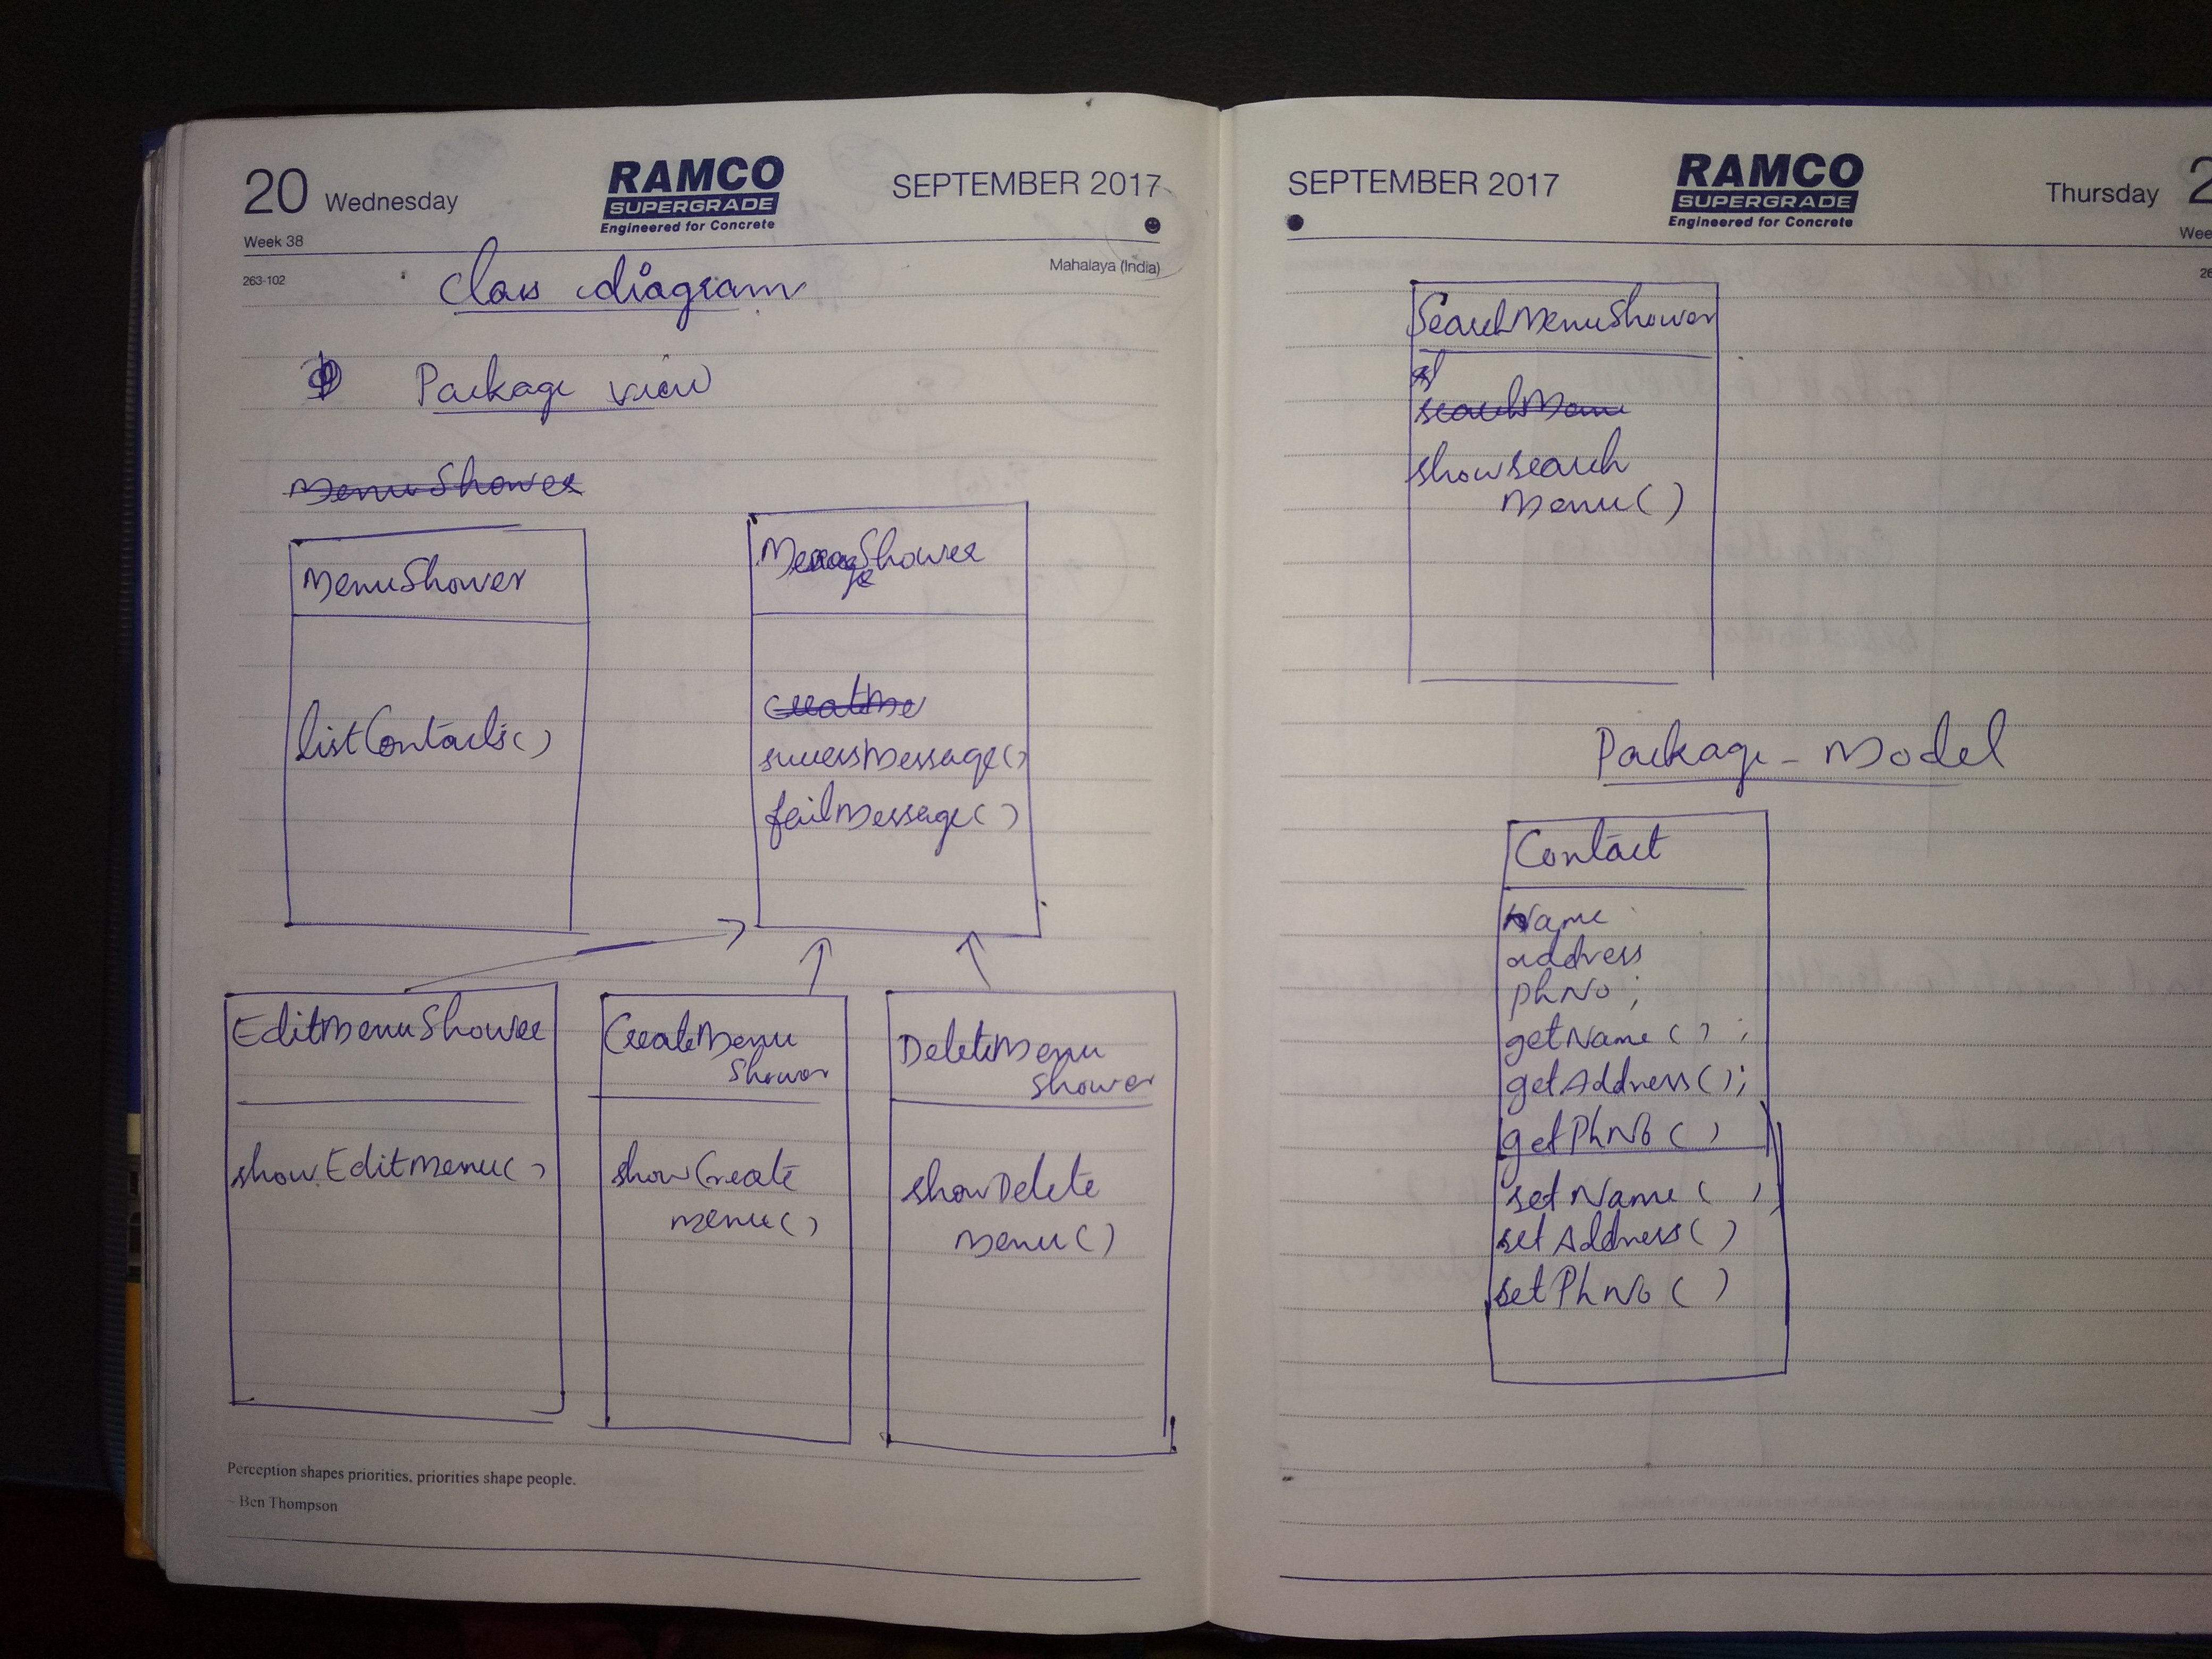 20 Wednesday
RAMCO
SUPERGRADE
Engineered for Concrete
SEPTEMBER 2017
Week 38
263-102
Mahalaya (India)
Class diagram
Package view
MenuShower
MenuShower
listContacts()
MessageShower
successMessage()
failMessage()
EditMenuShower
showEditMenu()
CreateMenu
Shower
showCreate
menu()
DeleteMenu
shower
showDelete
Menu()
Perception shapes priorities, priorities shape people.
~ Ben Thompson
SEPTEMBER 2017
RAMCO
SUPERGRADE
Engineered for Concrete
Thursday 2
Wee
26
SearchMenuShower
searchMenu
showsearch
Menu()
Package - Model
Contact
Name
address
phNo ;
getName( ) ;
getAddress();
getPhNo( )
setName( )
setAddress( )
setPhNo( )